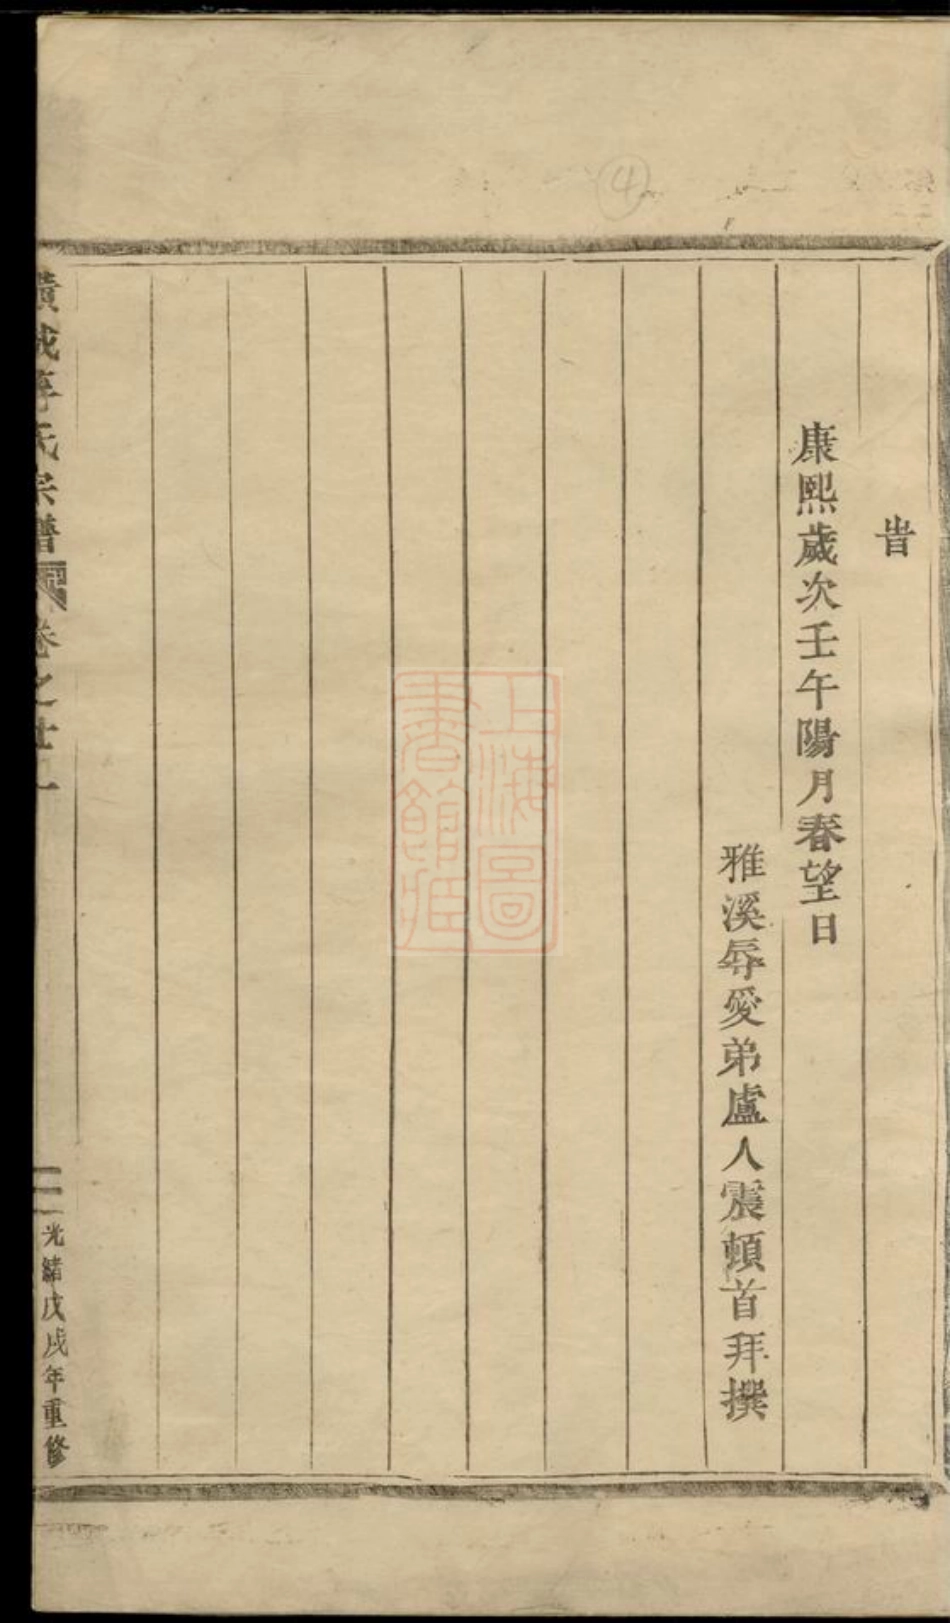 旹
康熙歲次壬午陽月春望日
雅溪辱愛弟盧人震頓首拜撰
李氏宗譜 卷之廿一
二 光緒戊戌年重修
上海圖書館藏
④